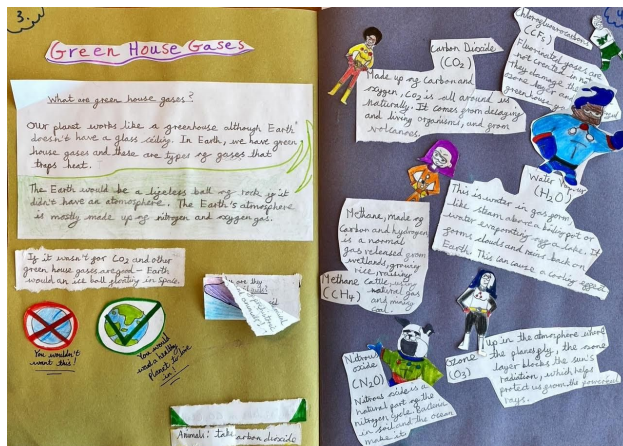 3.
Green House Gases
What are green house gases?
Our planet works like a greenhouse although Earth
doesn't have a glass ceiling. In Earth, we have green
house gases and these are types of gases that
traps heat.
The Earth would be a lifeless ball of rock if it
didn't have an atmosphere. The Earth's atmosphere
is mostly made up of nitrogen and oxygen gas.
If it wasn't for CO2 and other
green house gases are good - Earth
would an ice ball floating in space.
You wouldn't
want this!
You would
want a healthy
planet to live
in!
Animals: take carbon dioxide
Carbon Dioxide
(CO2)
Made up of Carbon and
oxygen, CO2 is all around is
naturally. It comes from decaying
and living organisms, and from
volcanoes.
(CCFs)
Fluorinated gases are
not created in
They damage the
ozone layer and
greenhouse
Water Vapour
(H2O)
This is water in gas form
like steam above a boiling pot or
water evaporating off a lake. It
forms clouds and rains back on
Earth. This can cause a cooling effect
Methane, made of
Carbon and hydrogen
is a normal
gas released from
wetlands, growing
rice, raising
cattle, using
natural gas
and mining
coal.
Methane
(CH4)
Ozone
(O3)
Up in the atmosphere where
the planes fly, the ozone
layer blocks the sun's
radiation, which helps
protect us from the powerful
rays.
Nitrous
oxide
(N2O)
Nitrous oxide is a
natural part of the
nitrogen cycle. Bacteria
in soil and the ocean
make it.